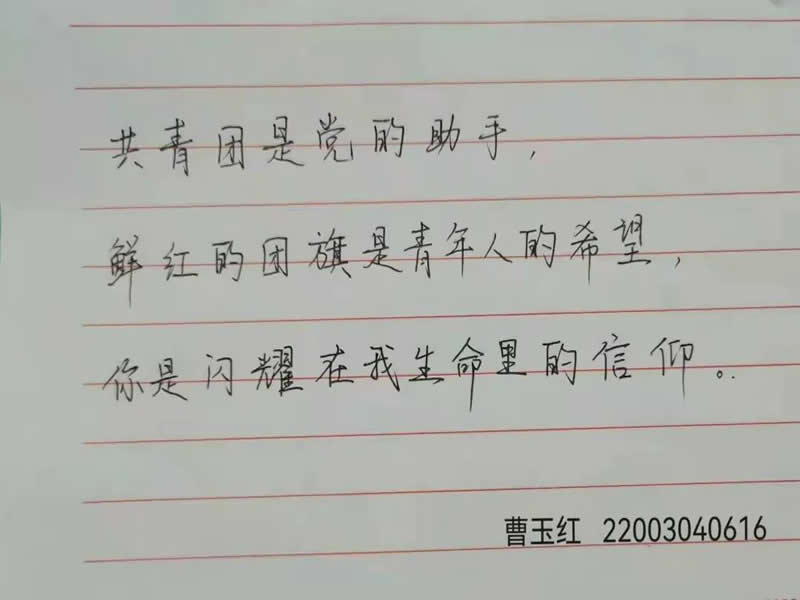 共青团是党的助手,
鲜红的团旗是青年人的希望,
你是闪耀在我生命里的信仰。
曹玉红 22003040616